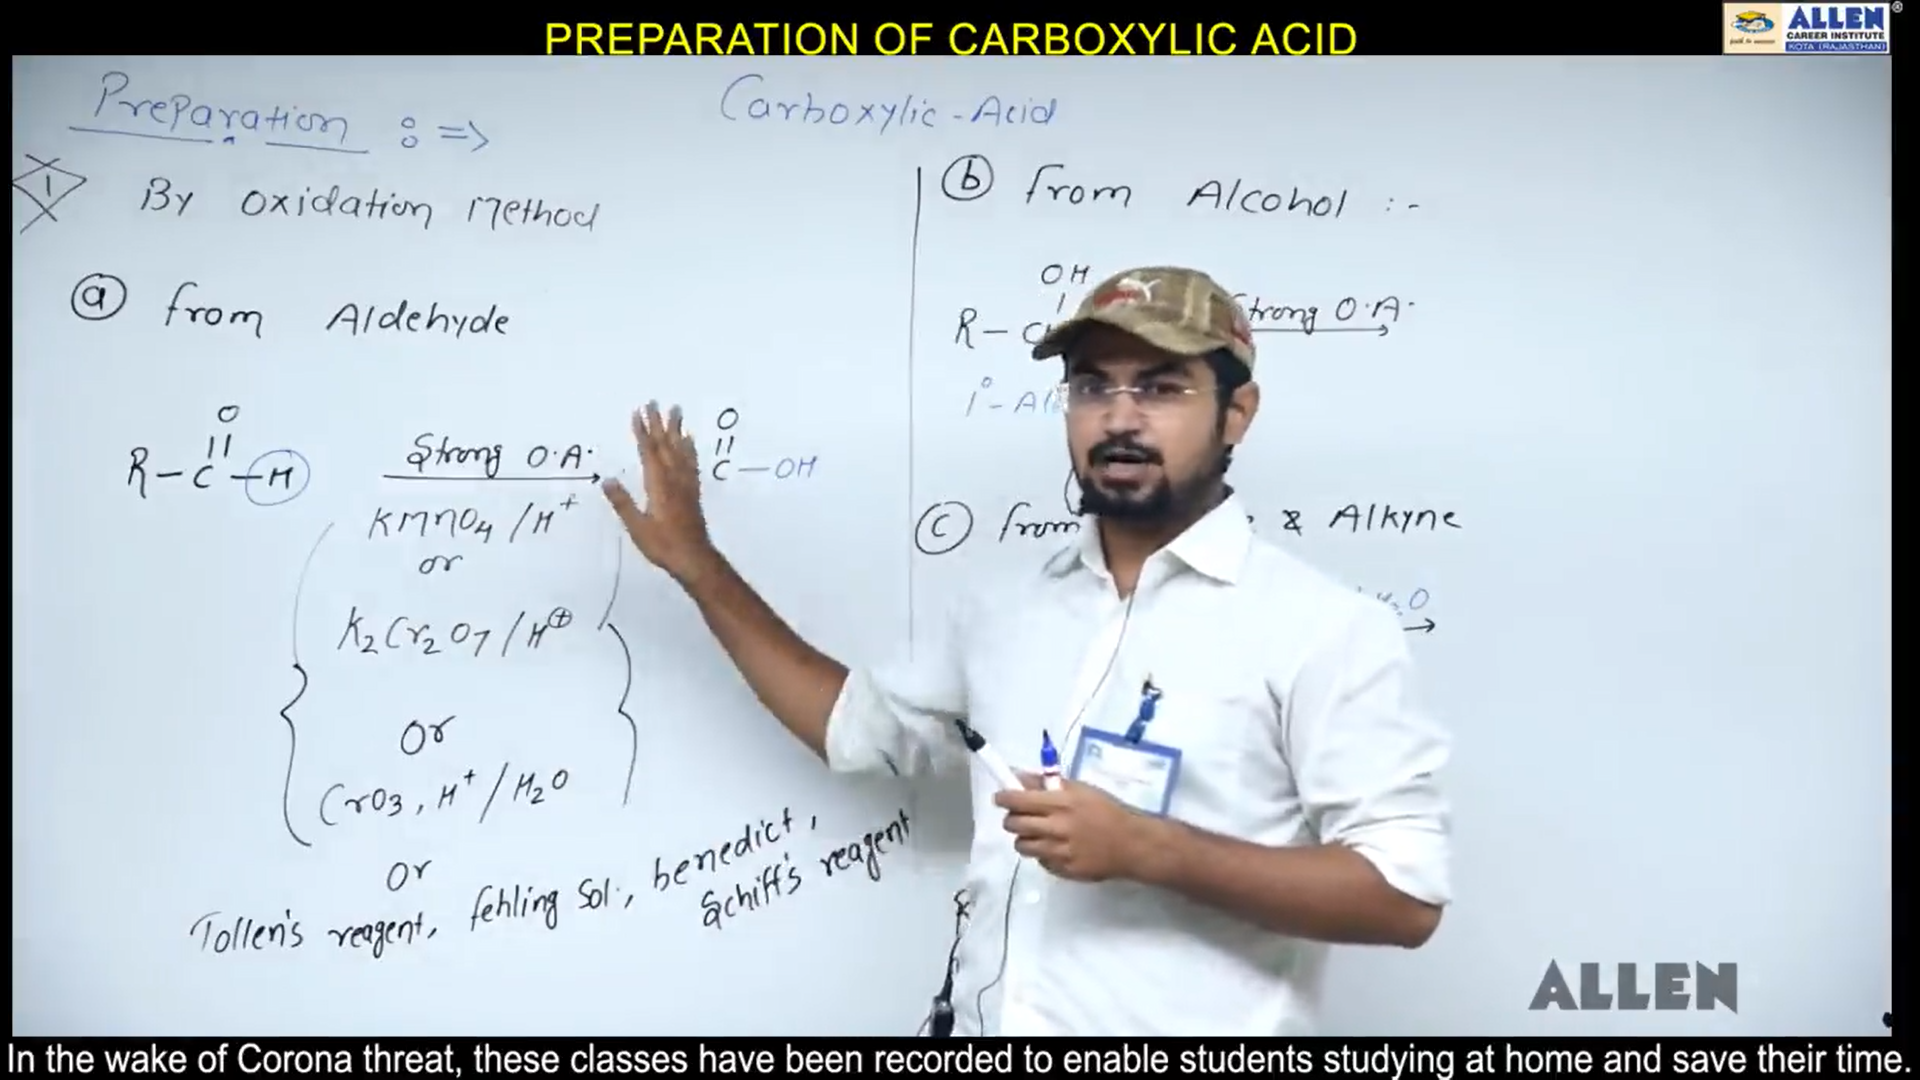 PREPARATION OF CARBOXYLIC ACID
ALLEN
CAREER INSTITUTE
KOTA (RAJASTHAN)
Preparation :=>
Carboxylic-Acid
1 By Oxidation Method
(a) from Aldehyde
O
R-C-H
Strong O.A.
KMnO4/H+
or
K2Cr2O7/H⊕
Or
CrO3, H+/H2O
Or
Tollen's reagent, fehling Sol., benedict,
Schiff's reagent
O
C-OH
(b) from Alcohol :-
OH
R-
Strong O.A.
1°-
(c) from & Alkyne
ALLEN
In the wake of Corona threat, these classes have been recorded to enable students studying at home and save their time.